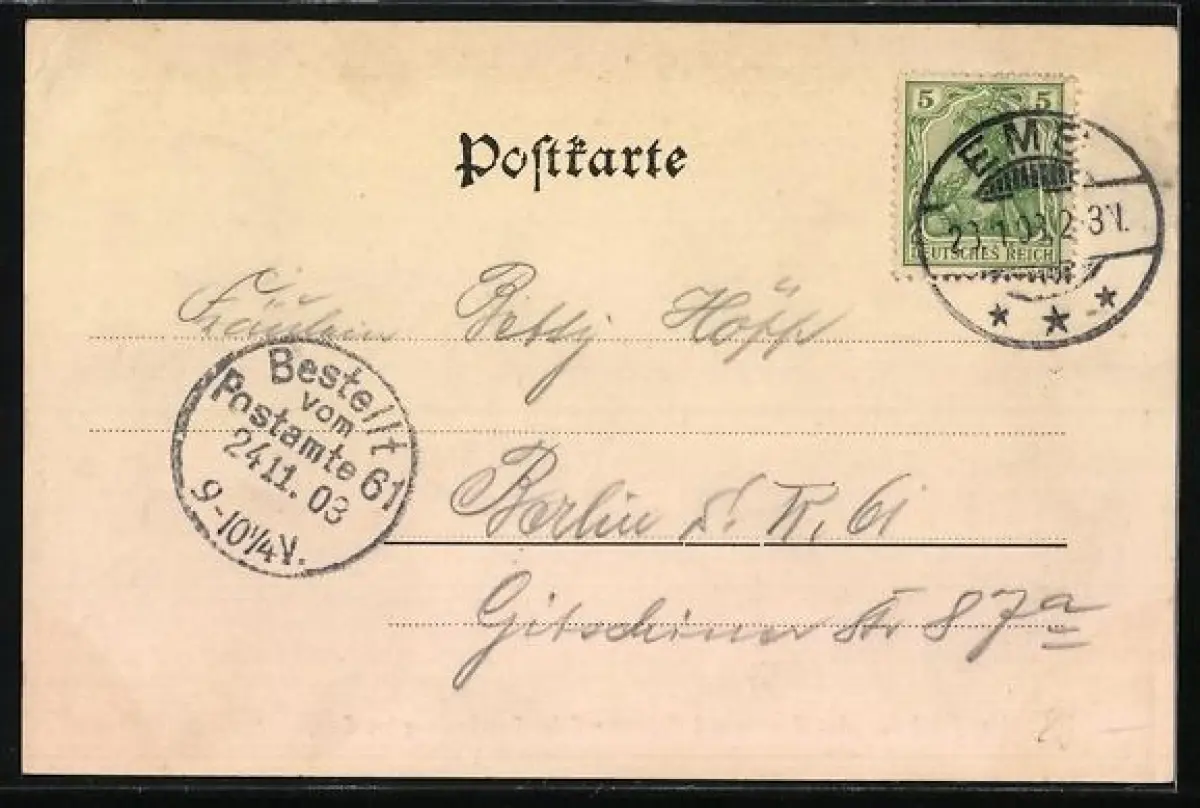 5 5
DEUTSCHES REICH
EMS
2-3N.
Postkarte
Fräulein Betty Höpp
Bestellt
vom
Postamte 61
24 11. 03
9-10¼V.
Berlin S. W. 61
Gitschiner Str 87a